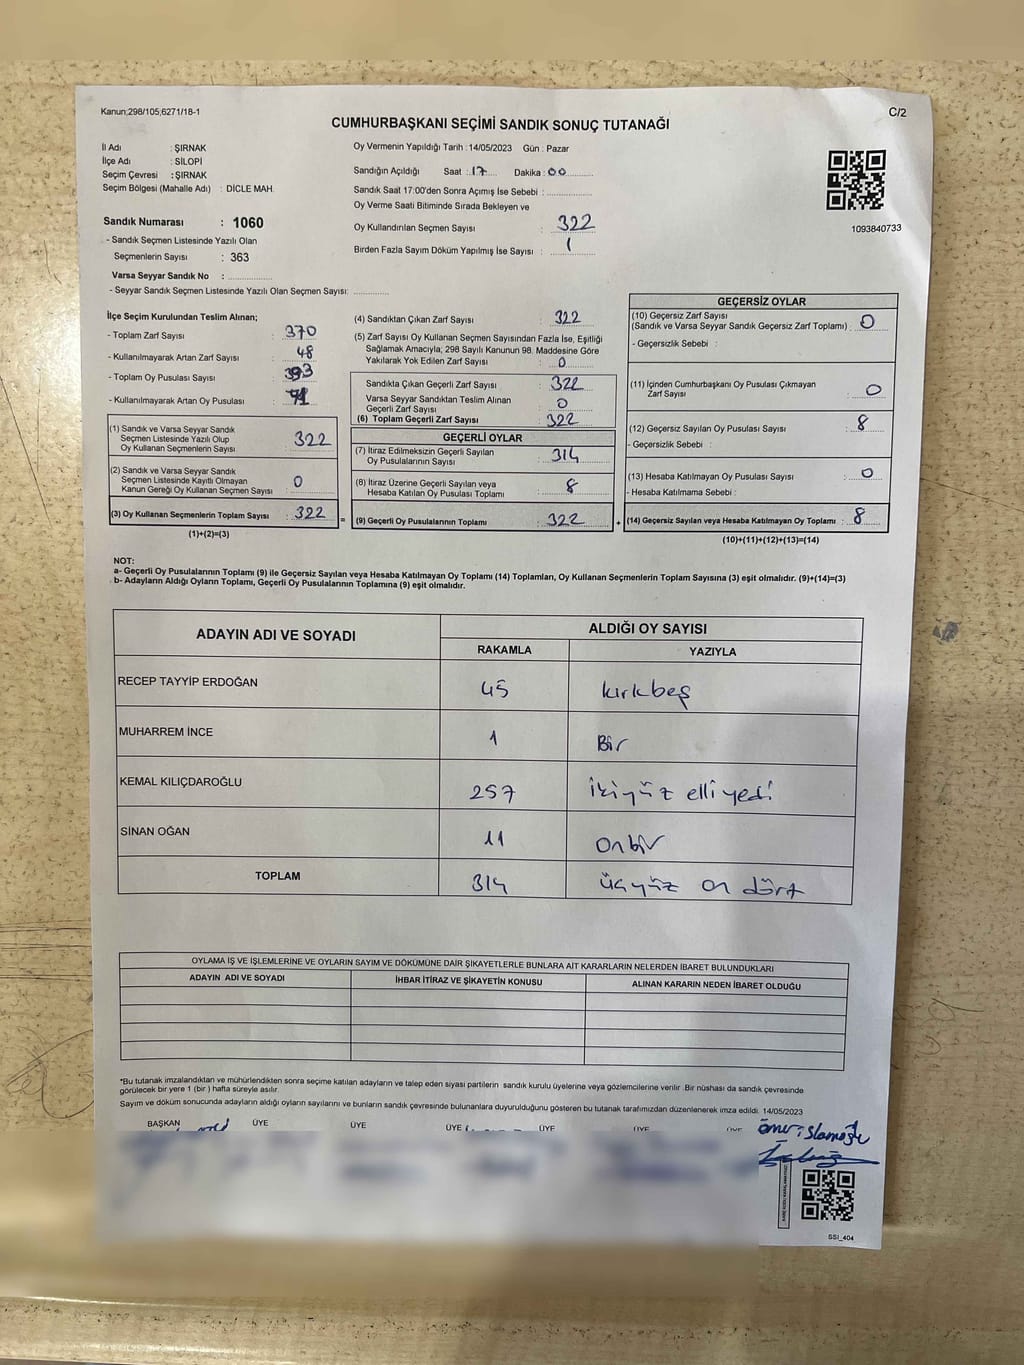 Kanun;298/105;6271/18-1
C/2
CUMHURBAŞKANI SEÇİMİ SANDIK SONUÇ TUTANAĞI
İl Adı : ŞIRNAK
İlçe Adı : SİLOPİ
Seçim Çevresi : ŞIRNAK
Seçim Bölgesi (Mahalle Adı) : DİCLE MAH.
Sandık Numarası : 1060
- Sandık Seçmen Listesinde Yazılı Olan
Seçmenlerin Sayısı : 363
Varsa Seyyar Sandık No :
- Seyyar Sandık Seçmen Listesinde Yazılı Olan Seçmen Sayısı:
Oy Vermenin Yapıldığı Tarih : 14/05/2023 Gün : Pazar
Sandığın Açıldığı Saat : 17 Dakika : 00
Sandık Saat 17:00'den Sonra Açımış İse Sebebi :
Oy Verme Saati Bitiminde Sırada Bekleyen ve
Oy Kullandırılan Seçmen Sayısı : 322
Birden Fazla Sayım Döküm Yapılmış İse Sayısı : 1
1093840733
İlçe Seçim Kurulundan Teslim Alınan;
- Toplam Zarf Sayısı : 370
- Kullanılmayarak Artan Zarf Sayısı : 48
- Toplam Oy Pusulası Sayısı :
- Kullanılmayarak Artan Oy Pusulası :
(1) Sandık ve Varsa Seyyar Sandık
Seçmen Listesinde Yazılı Olup
Oy Kullanan Seçmenlerin Sayısı : 322
(2) Sandık ve Varsa Seyyar Sandık
Seçmen Listesinde Kayıtlı Olmayan
Kanun Gereği Oy Kullanan Seçmen Sayısı : 0
(3) Oy Kullanan Seçmenlerin Toplam Sayısı : 322
(1)+(2)=(3)
(4) Sandıktan Çıkan Zarf Sayısı : 322
(5) Zarf Sayısı Oy Kullanan Seçmen Sayısından Fazla İse, Eşitliği
Sağlamak Amacıyla; 298 Sayılı Kanunun 98. Maddesine Göre
Yakılarak Yok Edilen Zarf Sayısı : 0
Sandıkta Çıkan Geçerli Zarf Sayısı : 322
Varsa Seyyar Sandıktan Teslim Alınan
Geçerli Zarf Sayısı : 0
(6) Toplam Geçerli Zarf Sayısı : 322
GEÇERLİ OYLAR
(7) İtiraz Edilmeksizin Geçerli Sayılan
Oy Pusulalarının Sayısı : 314
(8) İtiraz Üzerine Geçerli Sayılan veya
Hesaba Katılan Oy Pusulası Toplamı : 8
= (9) Geçerli Oy Pusulalarının Toplamı : 322
GEÇERSİZ OYLAR
(10) Geçersiz Zarf Sayısı
(Sandık ve Varsa Seyyar Sandık Geçersiz Zarf Toplamı) : 0
- Geçersizlik Sebebi :
(11) İçinden Cumhurbaşkanı Oy Pusulası Çıkmayan
Zarf Sayısı : 0
(12) Geçersiz Sayılan Oy Pusulası Sayısı : 8
- Geçersizlik Sebebi :
(13) Hesaba Katılmayan Oy Pusulası Sayısı : 0
- Hesaba Katılmama Sebebi :
+ (14) Geçersiz Sayılan veya Hesaba Katılmayan Oy Toplamı : 8
(10)+(11)+(12)+(13)=(14)
NOT:
a- Geçerli Oy Pusulalarının Toplamı (9) ile Geçersiz Sayılan veya Hesaba Katılmayan Oy Toplamı (14) Toplamları, Oy Kullanan Seçmenlerin Toplam Sayısına (3) eşit olmalıdır. (9)+(14)=(3)
b- Adayların Aldığı Oyların Toplamı, Geçerli Oy Pusulalarının Toplamına (9) eşit olmalıdır.
ADAYIN ADI VE SOYADI
ALDIĞI OY SAYISI
RAKAMLA YAZIYLA
RECEP TAYYİP ERDOĞAN 45 kırkbeş
MUHARREM İNCE 1 Bir
KEMAL KILIÇDAROĞLU 257 ikiyüz elli yedi
SİNAN OĞAN 11 onbir
TOPLAM 314 üçyüz on dört
OYLAMA İŞ VE İŞLEMLERİNE VE OYLARIN SAYIM VE DÖKÜMÜNE DAİR ŞİKAYETLERLE BUNLARA AİT KARARLARIN NELERDEN İBARET BULUNDUKLARI
ADAYIN ADI VE SOYADI İHBAR İTİRAZ VE ŞİKAYETİN KONUSU ALINAN KARARIN NEDEN İBARET OLDUĞU
*Bu tutanak imzalandıktan ve mühürlendikten sonra seçime katılan adayların ve talep eden siyasi partilerin sandık kurulu üyelerine veya gözlemcilerine verilir .Bir nüshası da sandık çevresinde
görülecek bir yere 1 (bir ) hafta süreyle asılır.
Sayım ve döküm sonucunda adayların aldığı oyların sayılarını ve bunların sandık çevresinde bulunanlara duyurulduğunu gösteren bu tutanak tarafımızdan düzenlenerek imza edildi. 14/05/2023
BAŞKAN ÜYE ÜYE ÜYE ÜYE ÜYE ÜYE
SSI_404